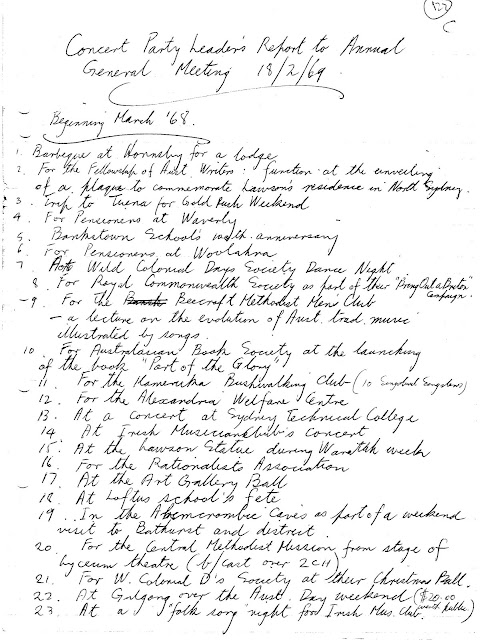 122
C
Concert Party Leader's Report to Annual
General Meeting 18/2/69.
Beginning March '68.
1. Barbeque at Hornsby for a lodge
2. For the Fellowship of Aust. Writers: function at the unveiling
of a plaque to commemorate Lawson's residence in North Sydney.
3. Trip to Tuena for Gold Rush Weekend
4. For Pensioners at Waverly
5. Bankstown School's anniversary
6. For Pensioners at Woolahra
7. At Wild Colonial Days Society Dance Night
8. For Royal Commonwealth Society as part of their "Bring Out a Briton" Campaign.
9. For the Beecroft Methodist Men's Club
- a lecture on the evolution of Aust. trad. music
illustrated by songs.
10. For Australasian Book Society at the launching
of the book "Part of the Glory"
11. For the Kameruka Bushwalking Club (10 Singabout Songsters)
12. For the Alexandria Welfare Centre
13. At a concert at Sydney Technical College
14. At Irish Musicians Club's concert
15. At the Lawson Statue during Waratah week
16. For the Rationalists Association
17. At the Art Gallery Ball
18. At Loftus school's fete
19. In the Abercrombie Caves as part of a weekend
visit to Bathurst and district.
20. For the Central Methodist Mission from stage of
Lyceum theatre (b/cast over 2CH
21. For W. Colonial D's Society at their Christmas Ball.
22. At Gulgong over the Aust. Day weekend ($20.00
23. At a "folk song" night for Irish Mus. Club.